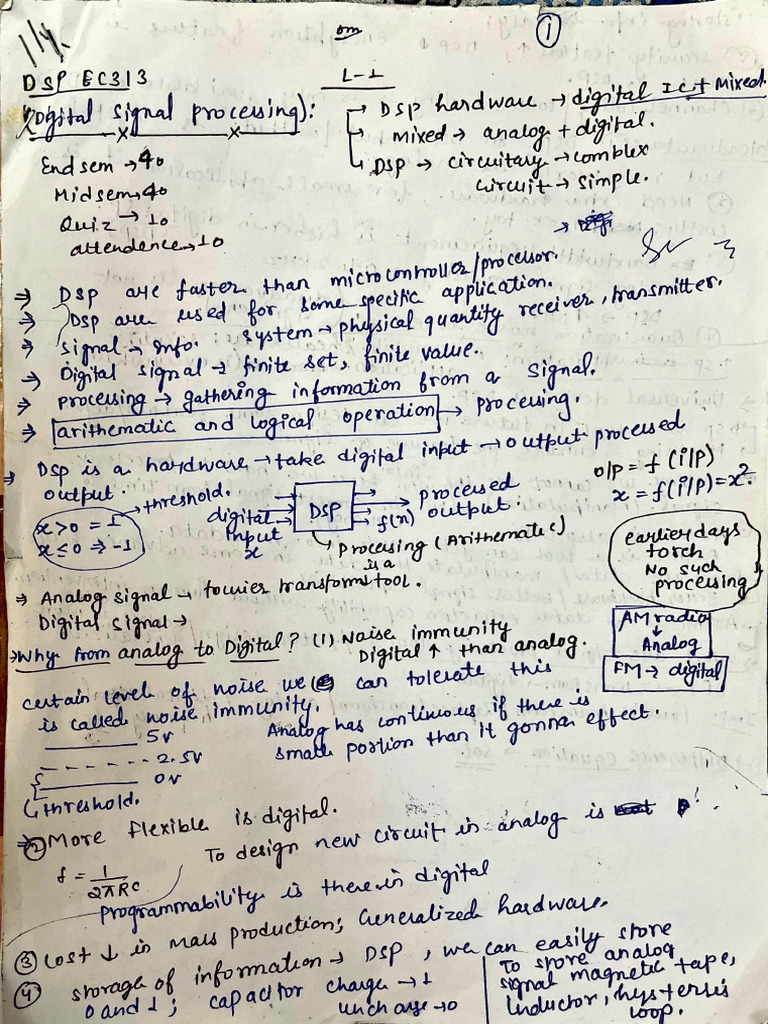 1/4.
om
①
DSP EC313
L-1
(Digital signal processing):
→ DSP hardware → digital IC + Mixed.
→ mixed → analog + digital.
→ DSP → circuitary → complex
circuit → simple.
End sem → 40
Midsem → 40
Quiz → 10
attendence → 10
⇒ DSP are faster than microcontroller/processor.
⇒ DSP are used for some specific application.
⇒ signal → Info. system → physical quantity receiver, transmitter.
→ Digital signal → finite set, finite value.
⇒ processing → gathering information from a signal.
⇒ arithematic and logical operation → processing.
⇒ DSP is a hardware → take digital input → output processed
output.
o/p = f(i/p)
x = f(i/p) = x².
x>0 = 1 → threshold.
x≤0 ⇒ -1
digital
input
x
DSP
f(n)
processed
output.
Processing (Arithematic)
earlier days
torch
No such
processing
⇒ Analog signal → fourier transform is a tool.
Digital signal →
AM radio
↓
Analog
FM → digital
⇒ Why from analog to Digital? (1) Noise immunity
Digital ↑ than analog.
certain level of noise we can tolerate this
is called noise immunity.
Analog has continuous if there is
small portion than it gonna effect.
5v
2.5v
0v
threshold.
⇒ ② More flexible is digital.
To design new circuit in analog is
f = 1/2πRC
Programmability is there in digital
③ Cost ↓ in Mass production; Generalized hardware.
④ storage of information → DSP, we can easily store
0 and 1; capactor charge → 1
uncharge → 0
To store analog
signal magnetic tape,
Inductor, hystersis
loop.